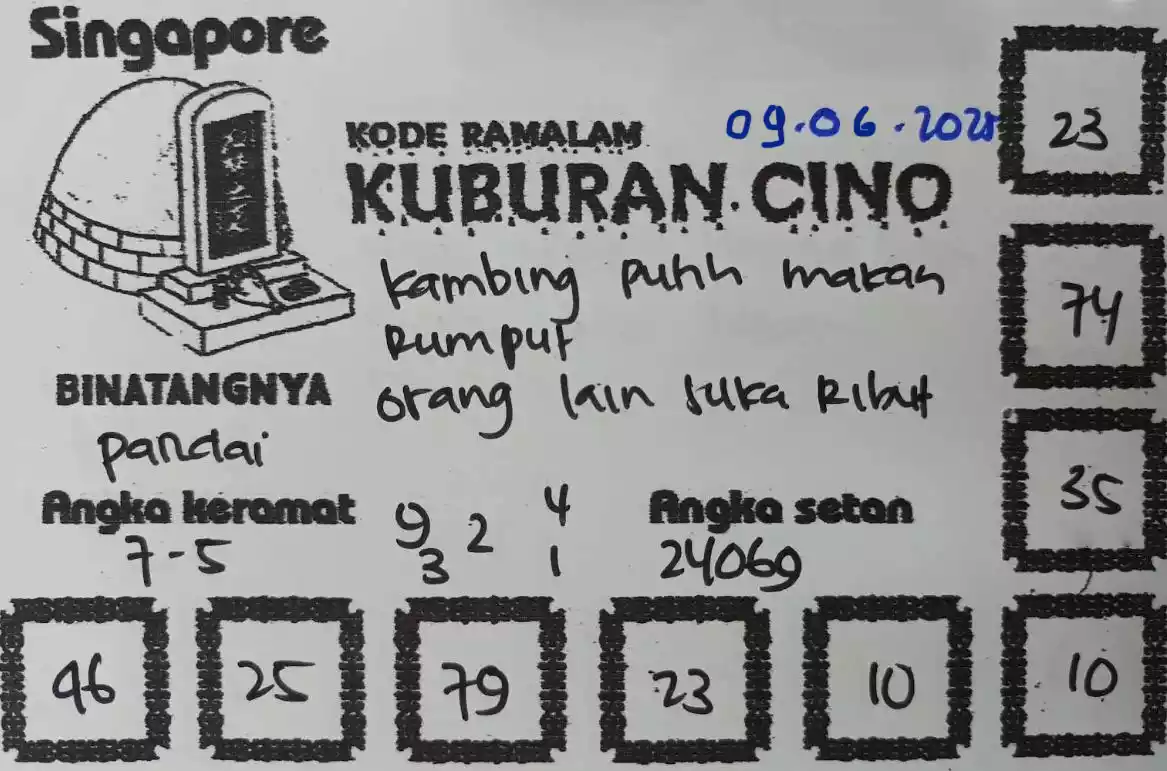 Singapore
KODE RAMALAM
09.06.2025
KUBURAN CINO
kambing putih makan
Rumput
orang lain suka Ribut
BINATANGNYA
pandai
Angka keramat
7-5
9 2 4
3 1
Angka setan
24069
23
74
35
46 25 79 23 10 10